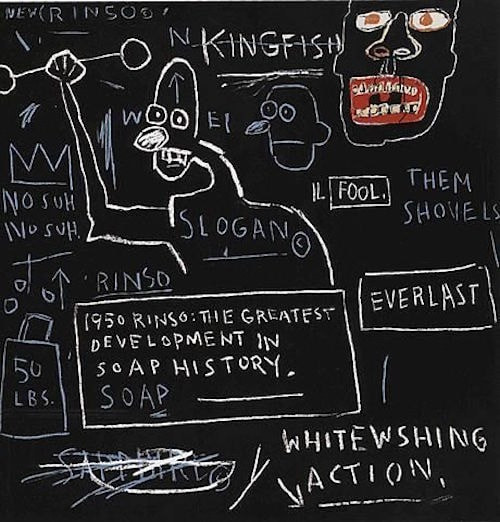 NEW(RINSO©)
N KINGFISH
W EI
NO SUH
NO SUH.
SLOGAN©
IL FOOL.
THEM
SHOVELS
RINSO
1950 RINSO: THE GREATEST
DEVELOPMENT IN
SOAP HISTORY.
SOAP
EVERLAST
50
LBS.
SAPPHIRE©
WHITEWSHING
ACTION.